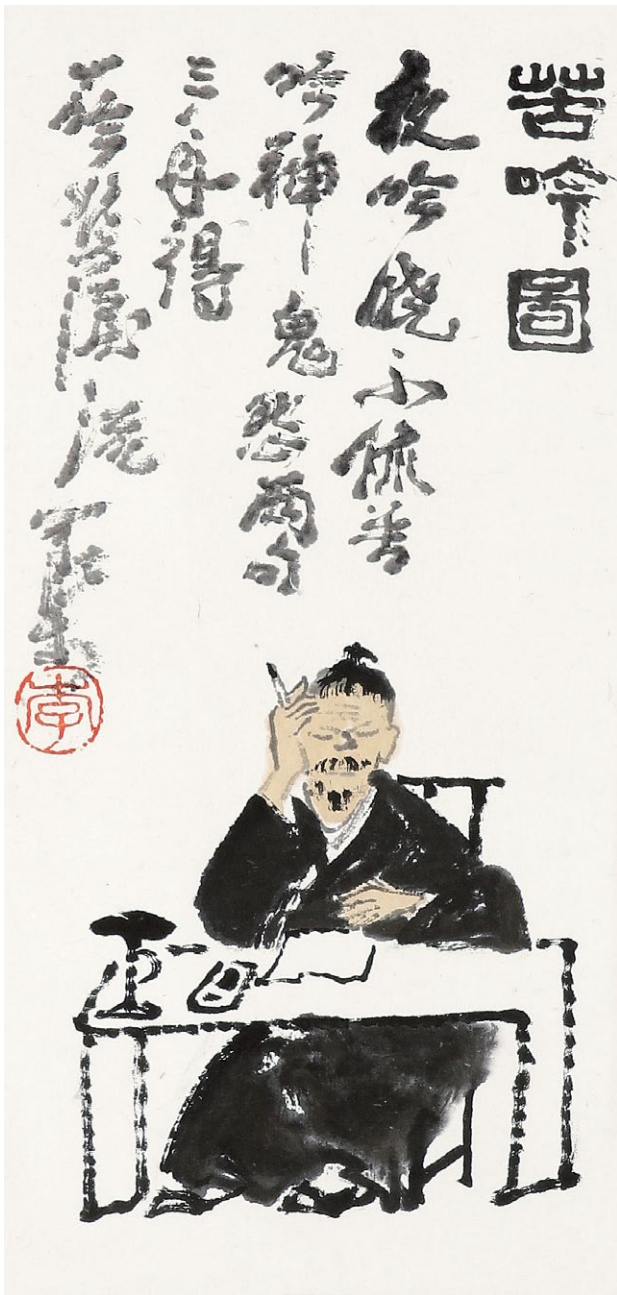 苦吟圖
夜吟曉不休苦
吟神鬼愁兩句
三年得
一吟雙淚流
李